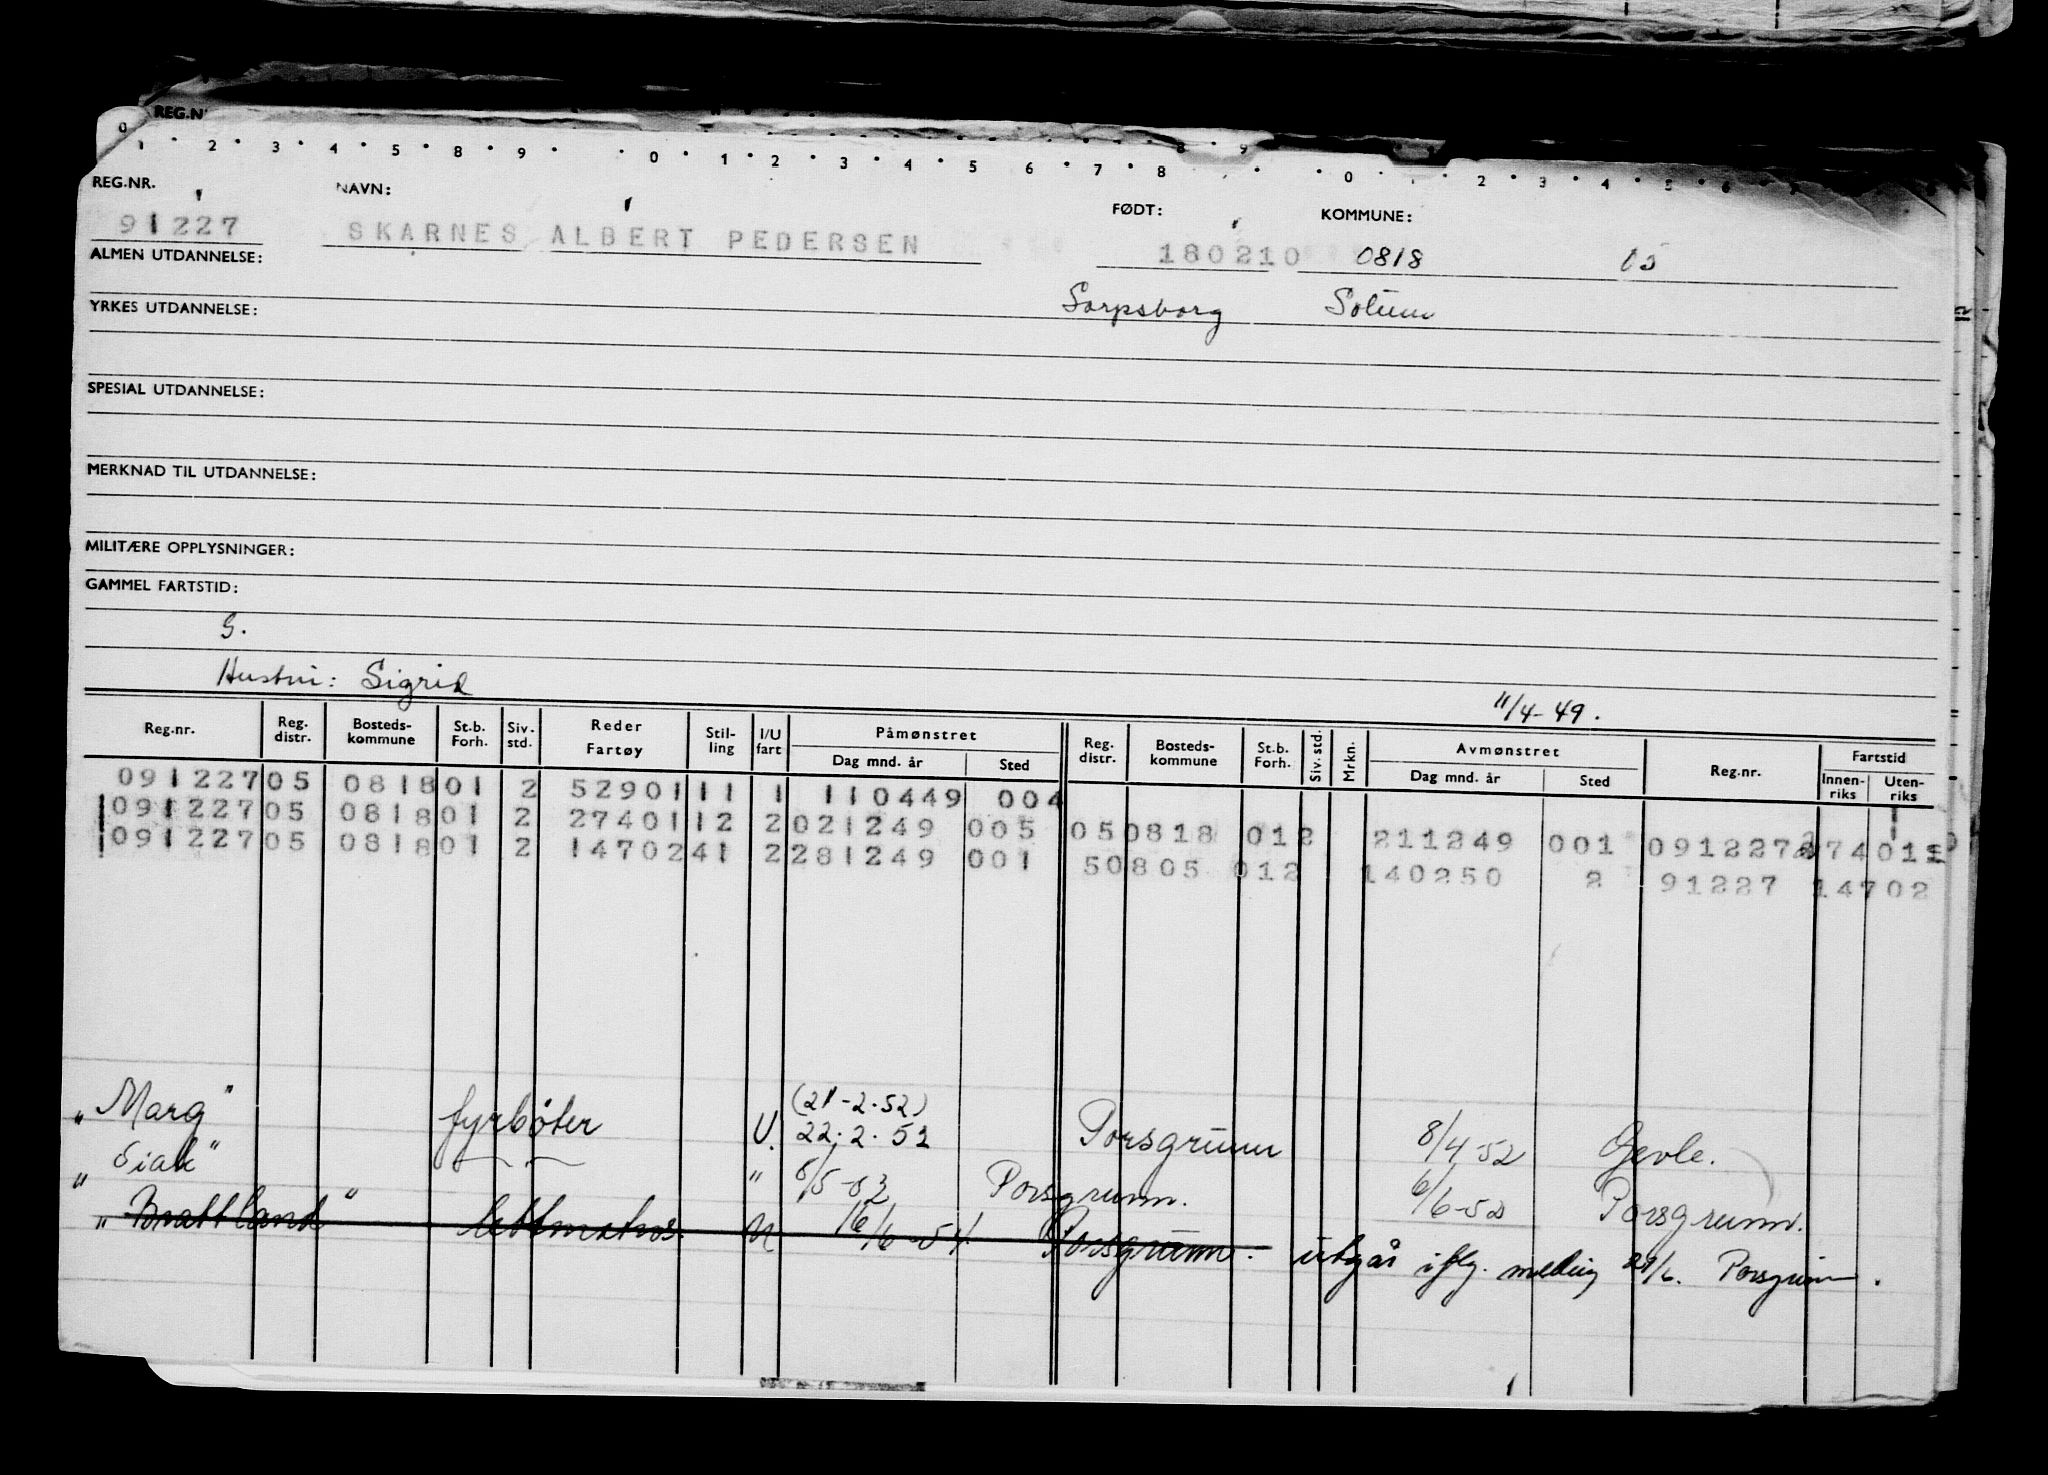 REG.N
0 1 2 3 4 5 8 9 0 1 2 3 4 5 6 7 8 9 0 2 3 4 5 6
REG.NR. NAVN: FØDT: KOMMUNE:
91227 SKARNES ALBERT PEDERSEN 180210 0818 05
ALMEN UTDANNELSE:
Sarpsborg Solum
YRKES UTDANNELSE:
SPESIAL UTDANNELSE:
MERKNAD TIL UTDANNELSE:
MILITÆRE OPPLYSNINGER:
GAMMEL FARTSTID:
G.
Hustru: Sigrid
11/4-49.
Reg.nr. Reg. distr. Bosteds- kommune St.b. Forh. Siv. std. Reder Fartøy Stil- ling I/U fart Påmønstret Dag mnd. år Sted Reg. distr. Bosteds- kommune St.b. Forh. Siv. std. Mrkn. Avmønstret Dag mnd. år Sted Reg.nr. Fartstid Innen- riks Uten- riks
091227 05 0818 01 2 52901 11 1 110449 004
091227 05 0818 01 2 27401 12 2 021249 005 05 0818 01 2 211249 001 091227 27401
091227 05 0818 01 2 14702 41 2 281249 001 5 0805 01 2 140250 2 91227 14702
(21-2-52)
"Marg" fyrbøter U. 22.2.52 Porsgrunn 8/4-52 Gevle.
"Siak" " Porsgrunn. Porsgrunn.
"Brattland" lettmatros. 16/6-54 Porsgrunn. utgår iflg. melding Porsgrunn.